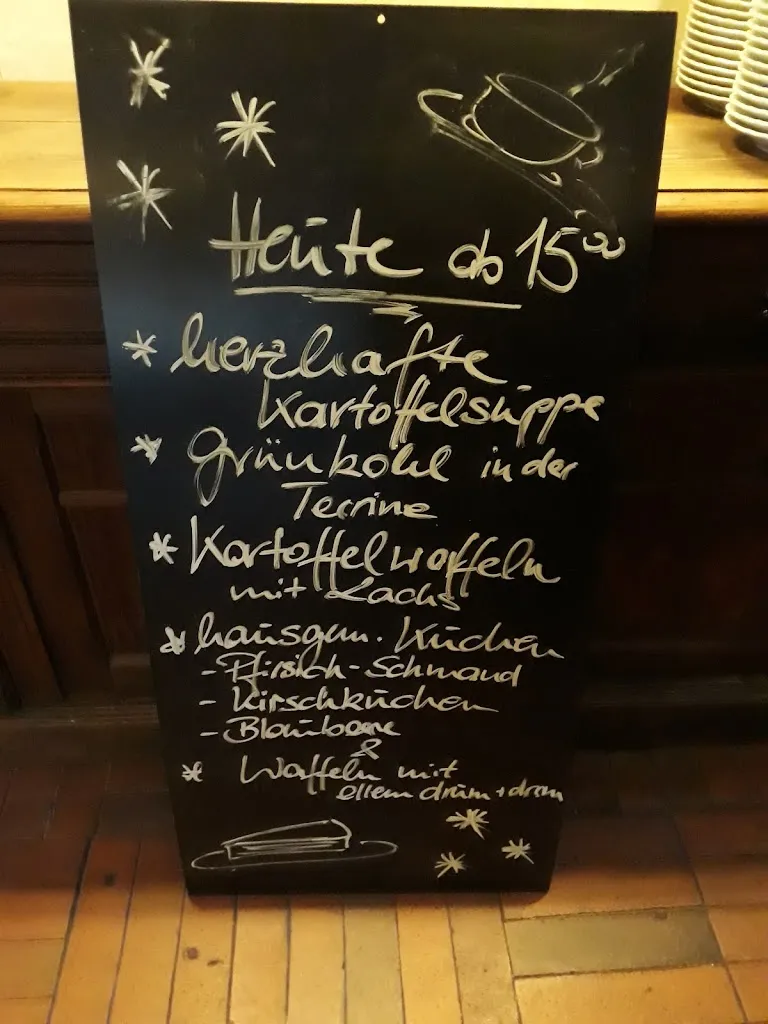 Heute ab 15⁰⁰
* herzhafte
Kartoffelsuppe
* Grünkohl in der
Terrine
* Kartoffelwaffeln
mit Lachs
* hausgem. Kuchen
- Pfirsich-Schmand
- Kirschkuchen
- Blaubeere
&
* Waffeln mit
allem drum + dran